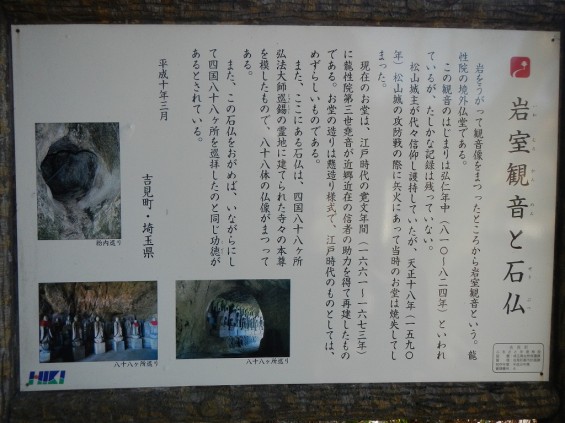 岩室観音と石仏
岩をうがって観音像をまつったところから岩室観音という。龍
性院の境外仏堂である。
この観音のはじまりは弘仁年中（八一〇〜八二四年）といわれ
ているが、たしかな記録は残っていない。
松山城主が代々信仰し護持していたが、天正十八年（一五九〇
年）松山城の攻防戦の際に兵火にあって当時のお堂は焼失してし
まった。
現在のお堂は、江戸時代の寛文年間（一六六一〜一六七三年）
に龍性院第三世堯音が近郷近在の信者の助力を得て再建したもの
である。お堂の造りは懸造り様式で、江戸時代のものとしては、
めずらしいものである。
また、ここにある石仏は、四国八十八ヶ所
弘法大師巡錫の霊地に建てられた寺々の本尊
を模したもので、八十八体の仏像がまつって
ある。
また、この石仏をおがめば、いながらにし
て四国八十八ヶ所を巡拝したのと同じ功徳が
あるとされている。
平成十年三月
吉見町・埼玉県
胎内巡り
八十八ヶ所巡り
八十八ヶ所巡り
HIKI